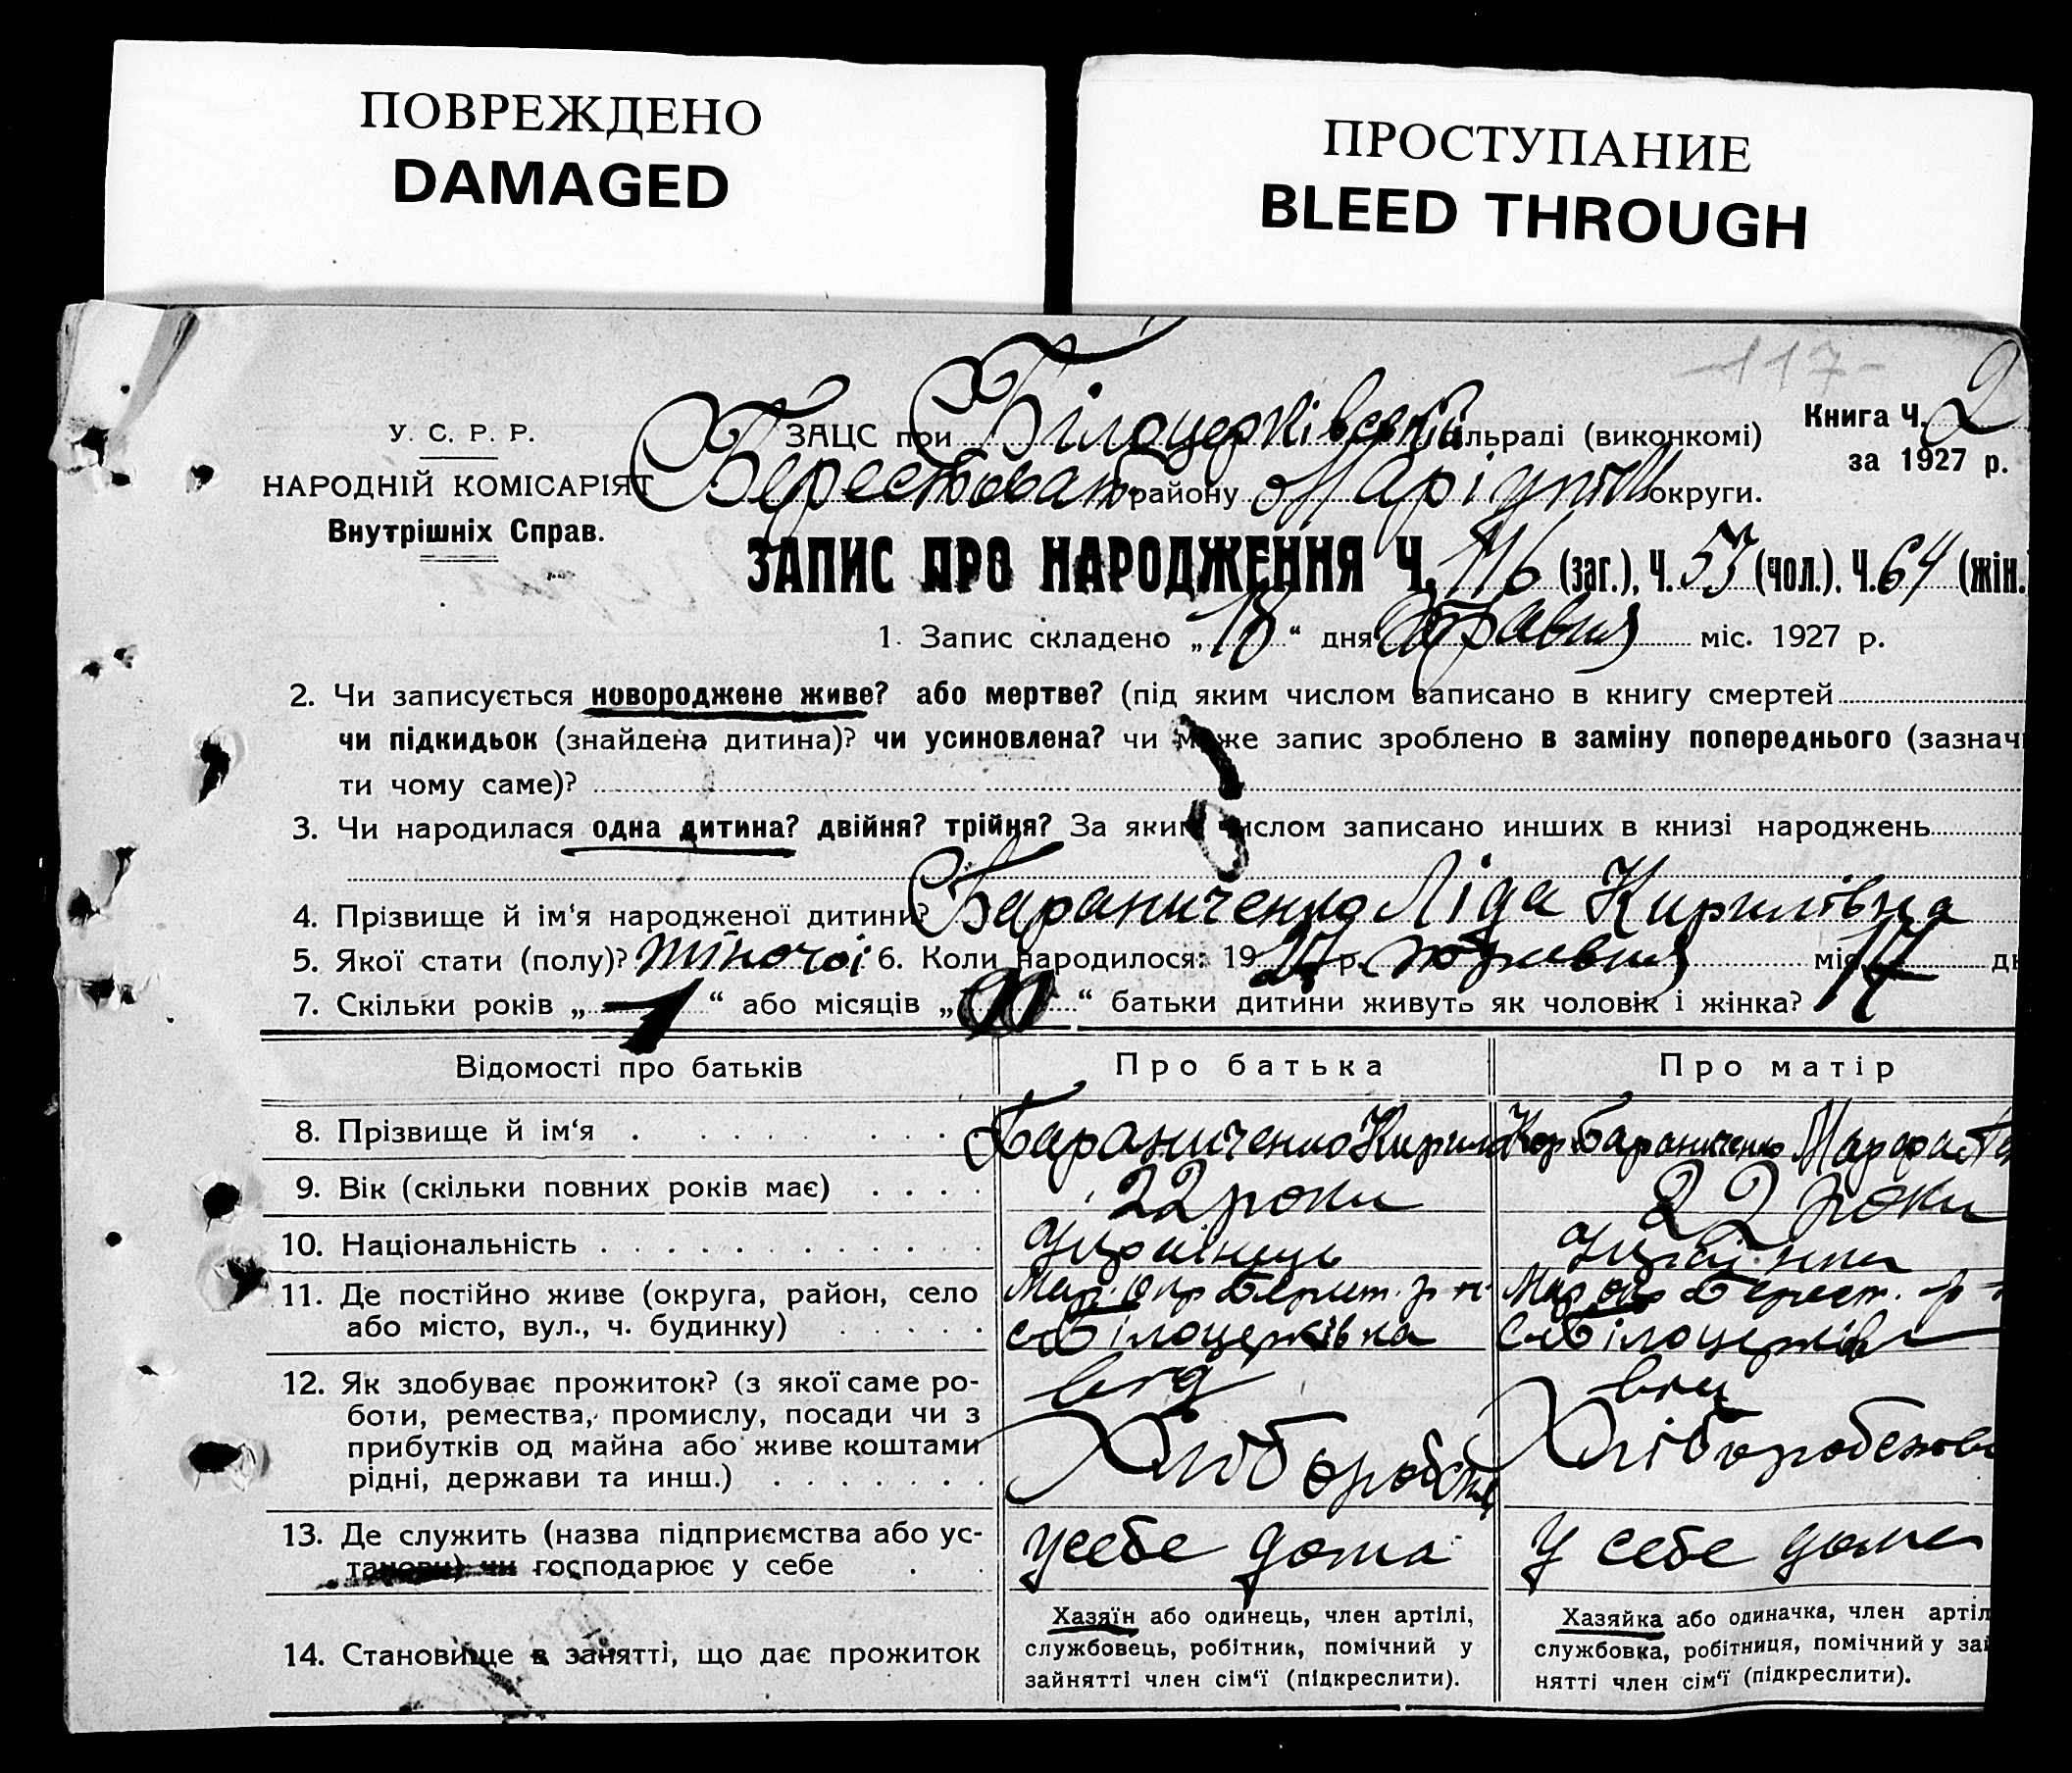 ПОВРЕЖДЕНО
DAMAGED
ПРОСТУПАНИЕ
BLEED THROUGH
-117-
У. С. Р. Р.
НАРОДНІЙ КОМІСАРІЯТ
Внутрішніх Справ.
ЗАЦС при Білоцерківській сільраді (виконкомі)
Берестоват. району Маріупол округи.
Книга Ч. 2
за 1927 р.
ЗАПИС ПРО НАРОДЖЕННЯ Ч. 116 (заг.), Ч. 53 (чол.). Ч. 64 (жін.
1. Запис складено „18“ дня травня міс. 1927 р.
2. Чи записується новороджене живе? або мертве? (під яким числом записано в книгу смертей
чи підкидьок (знайдена дитина)? чи усиновлена? чи може запис зроблено в заміну попереднього (зазначи
ти чому саме)?
3. Чи народилася одна дитина? двійня? трійня? За яким числом записано инших в книзі народжень
4. Прізвище й ім‘я народженої дитини? Бараниченко Ліда Кирилівна
5. Якої стати (полу)? жіночої 6. Коли народилося: 1927 р. травня міс. 17 дн
7. Скільки років „ “ або місяців „ “ батьки дитини живуть як чоловік і жінка?
Відомості про батьків
Про батька
Про матір
8. Прізвище й ім‘я
Бараниченко Кирило
Бараниченко Марфа
9. Вік (скільки повних років має)
22 роки
22 роки
10. Національність
Українець
Українка
11. Де постійно живе (округа, район, село
або місто, вул., ч. будинку)
Мар. окр Берест. р-н
с. Білоцерківка
Мар. окр Берест. р-
с. Білоцерків
12. Як здобуває прожиток? (з якої саме ро-
боти, ремества, промислу, посади чи з
прибутків од майна або живе коштами
рідні, держави та инш.)
Хліборобств
Хлібороб
13. Де служить (назва підприємства або ус-
танови) чи господарює у себе
у себе дома
у себе дома
14. Становище в занятті, що дає прожиток
Хазяїн або одинець, член артілі,
службовець, робітник, помічний у
зайнятті член сім‘ї (підкреслити).
Хазяйка або одиначка, член артіл
службовка, робітниця, помічний у зай
нятті член сім‘ї (підкреслити).